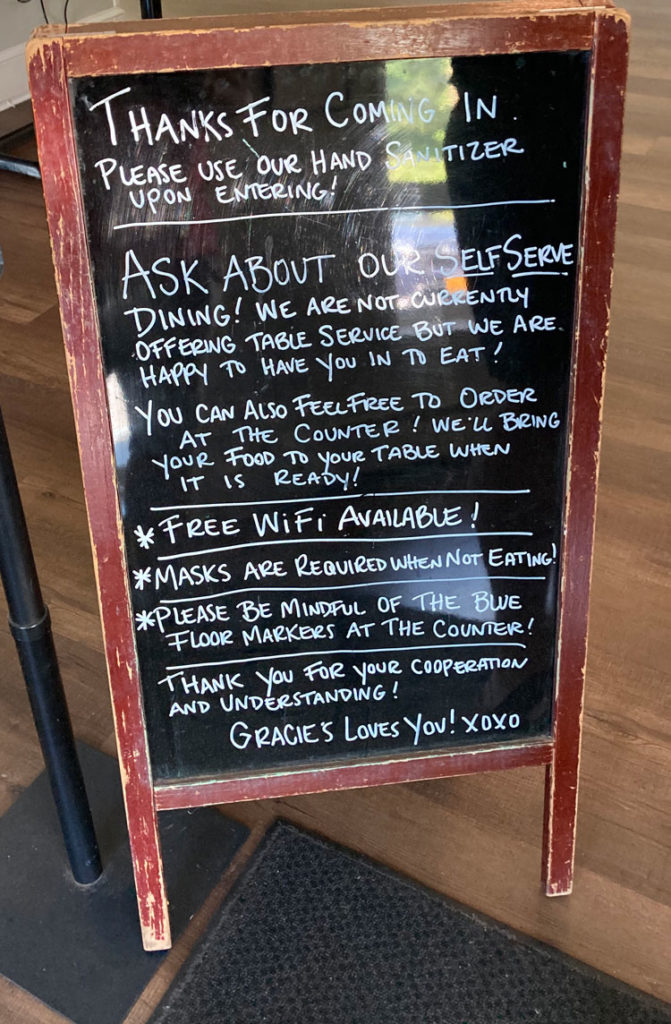 THANKS FOR COMING IN.
PLEASE USE OUR HAND SANITIZER
UPON ENTERING!
ASK ABOUT OUR SELFSERVE
DINING! WE ARE NOT CURRENTLY
OFFERING TABLE SERVICE BUT WE ARE
HAPPY TO HAVE YOU IN TO EAT!
YOU CAN ALSO FEEL FREE TO ORDER
AT THE COUNTER! WE'LL BRING
YOUR FOOD TO YOUR TABLE WHEN
IT IS READY!
*FREE WIFI AVAILABLE!
*MASKS ARE REQUIRED WHEN NOT EATING!
*PLEASE BE MINDFUL OF THE BLUE
FLOOR MARKERS AT THE COUNTER!
THANK YOU FOR YOUR COOPERATION
AND UNDERSTANDING!
GRACIE'S LOVES YOU! XOXO